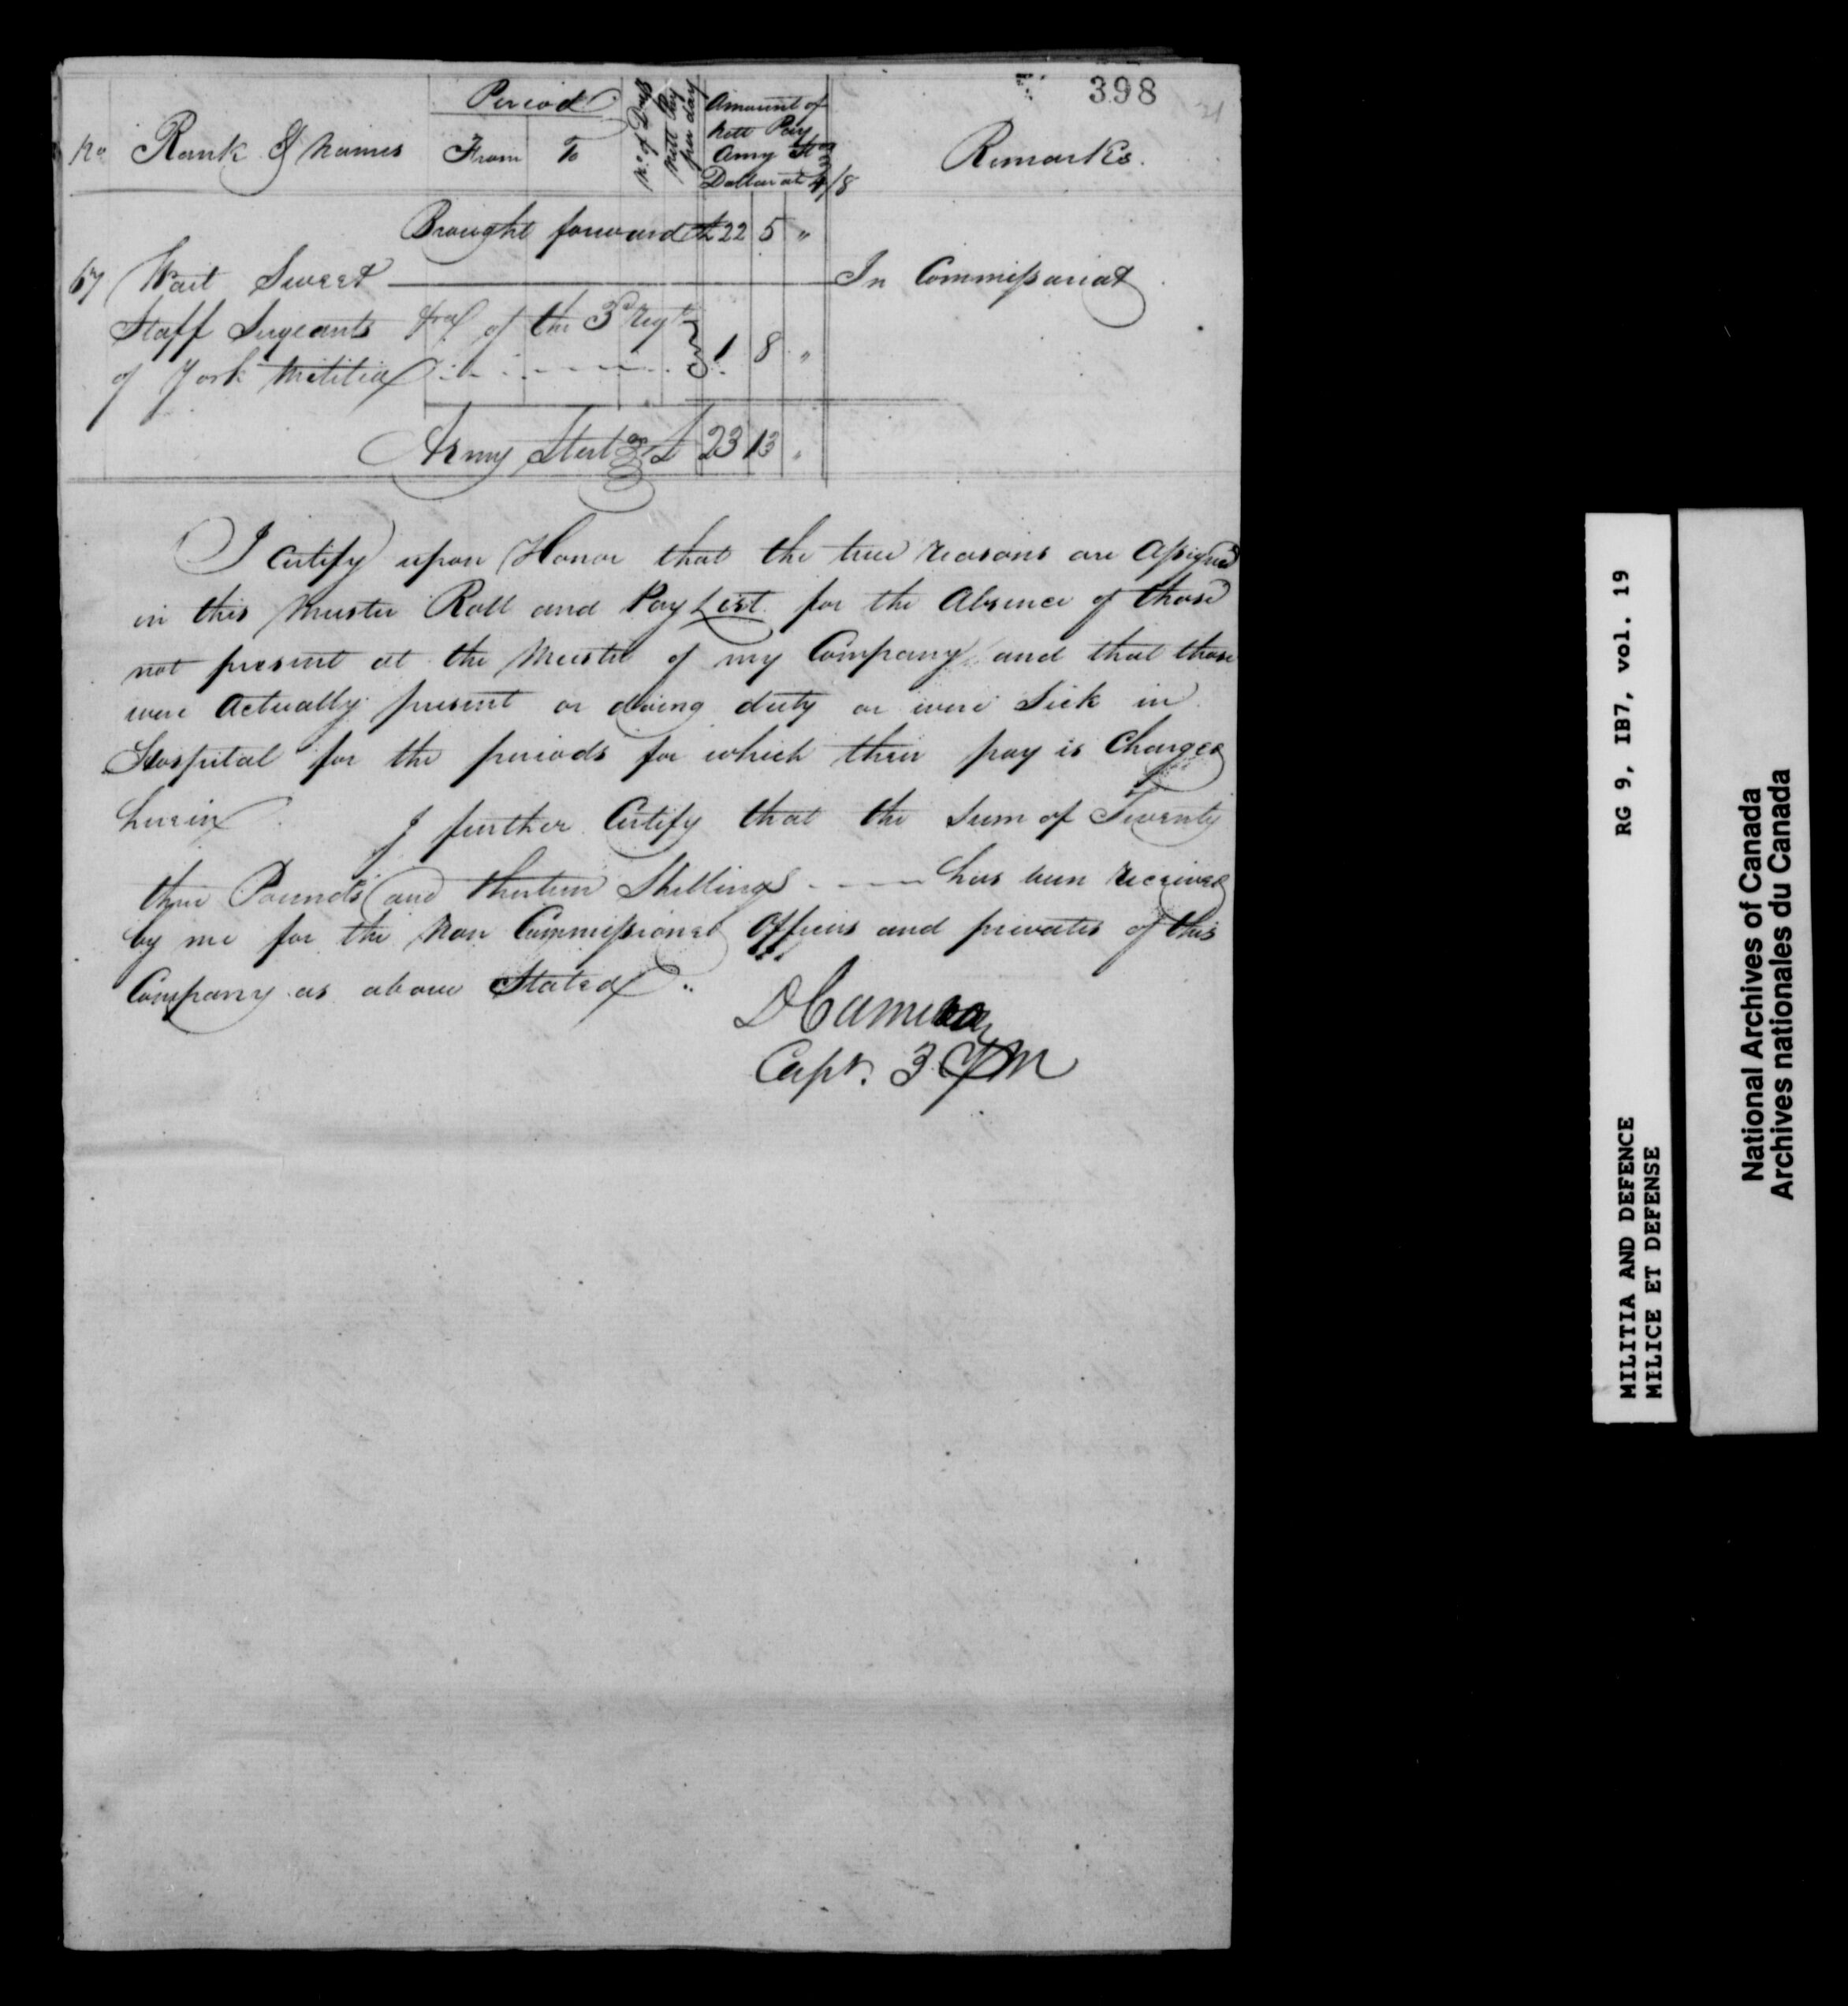 398
21
No Rank & Names
Period
From To
No. of Days
Nett Pay
per day
Amount of
Nett Pay
Army Stg
Dollar at 4/8
Remarks.
Brought forward £ 22 5 "
67 Wait Sweet In Commissariat
Staff Sergeants of the 3d Regt
of York Militia 1 8 "
Army Sterlg £ 23 13 "
I Certify upon Honor that the true reasons are Assigned
in this Muster Roll and Pay List for the Absence of those
not present at the Muster of my Company and that those
were Actually present or doing duty or were Sick in
Hospital for the periods for which their pay is Charged
herein. I further Certify that the Sum of Twenty
three Pounds and thirteen Shillings has been received
by me for the Non Commissioned Officers and privates of this
Company as above Stated
D Cameron
Capt. 3 YM
RG 9, IB7, vol. 19
MILITIA AND DEFENCE
MILICE ET DEFENSE
National Archives of Canada
Archives nationales du Canada